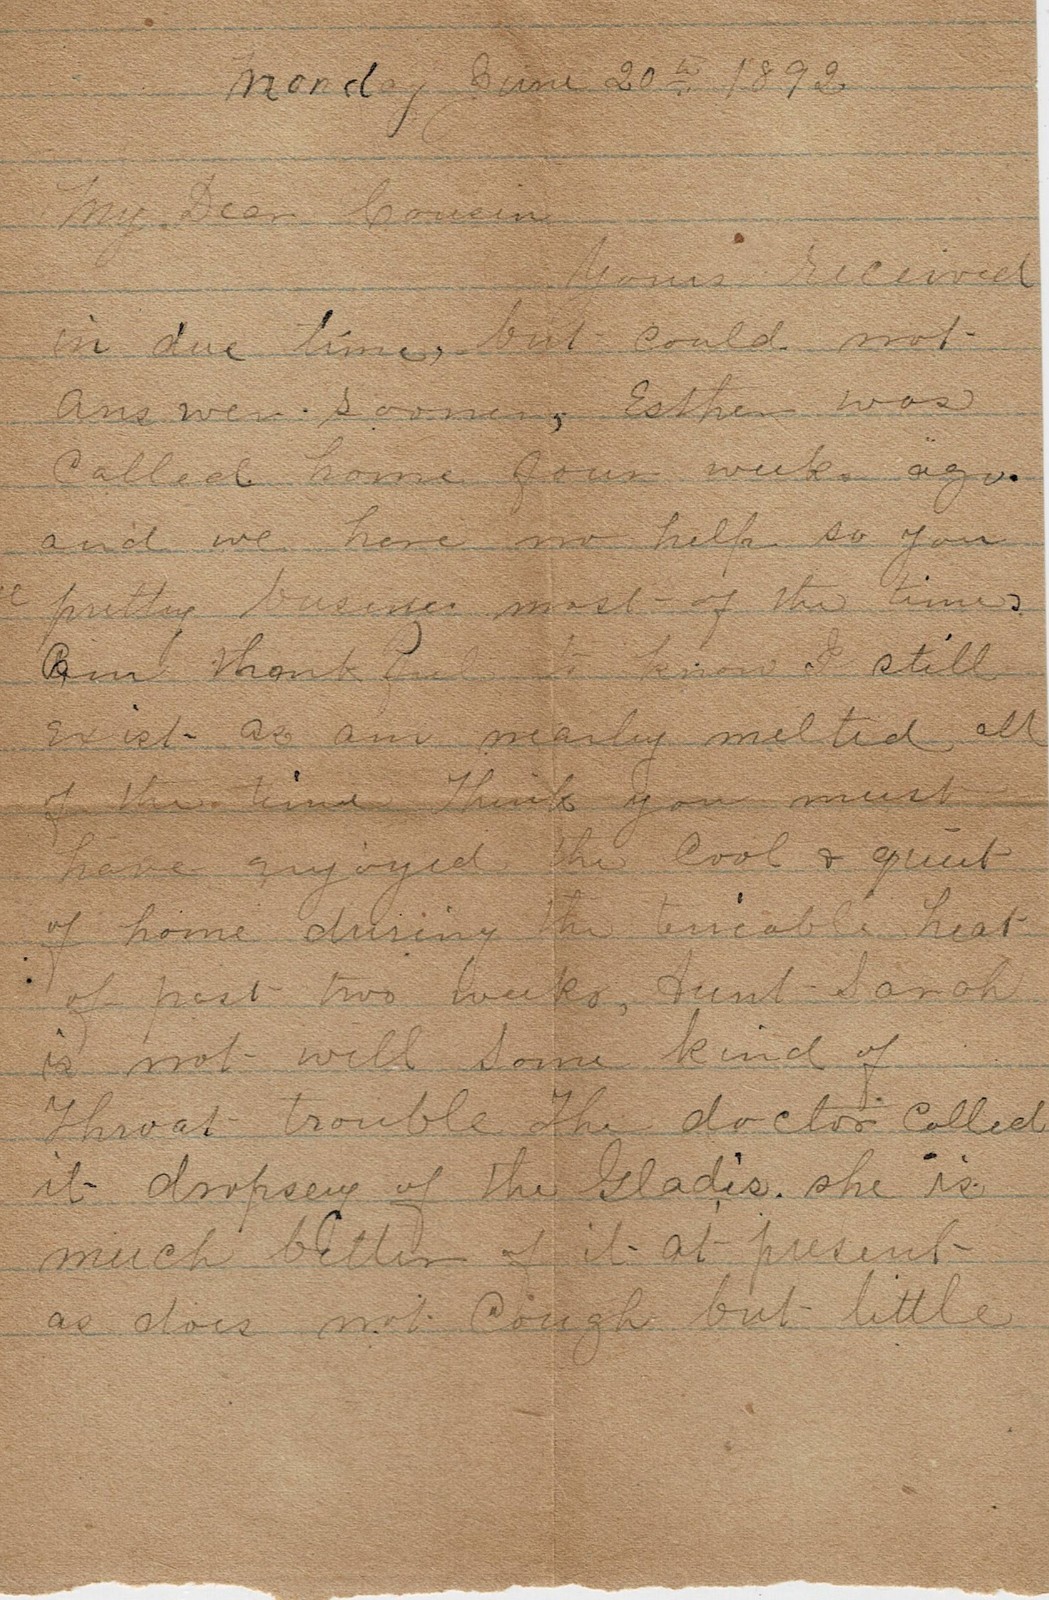 Monday June 20th 1892
My Dear Cousin
Yours received
in due time, but could not
answer sooner, Esther was
Called home four weeks ago.
and we have no help so you
pretty busy most of the time,
Am thankful to know I still
exist as am nearly melted all
of the time Think you must
have enjoyed the Cool & quiet
of home during the terrable heat
of past two weeks, Aunt Sarah
is not well Some kind of
Throat trouble The doctor Called
it dropsey of the Gladis. she is
much better of it at present
as does not Cough but little